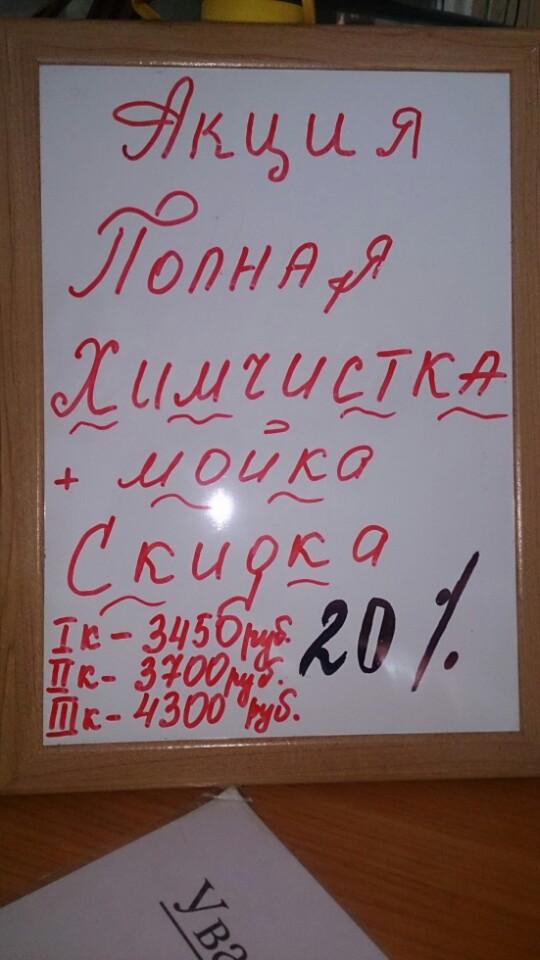 Акция
Полная
Химчистка
+ мойка
Скидка
20%
Iк - 3450 руб.
IIк - 3700 руб.
IIIк - 4300 руб.